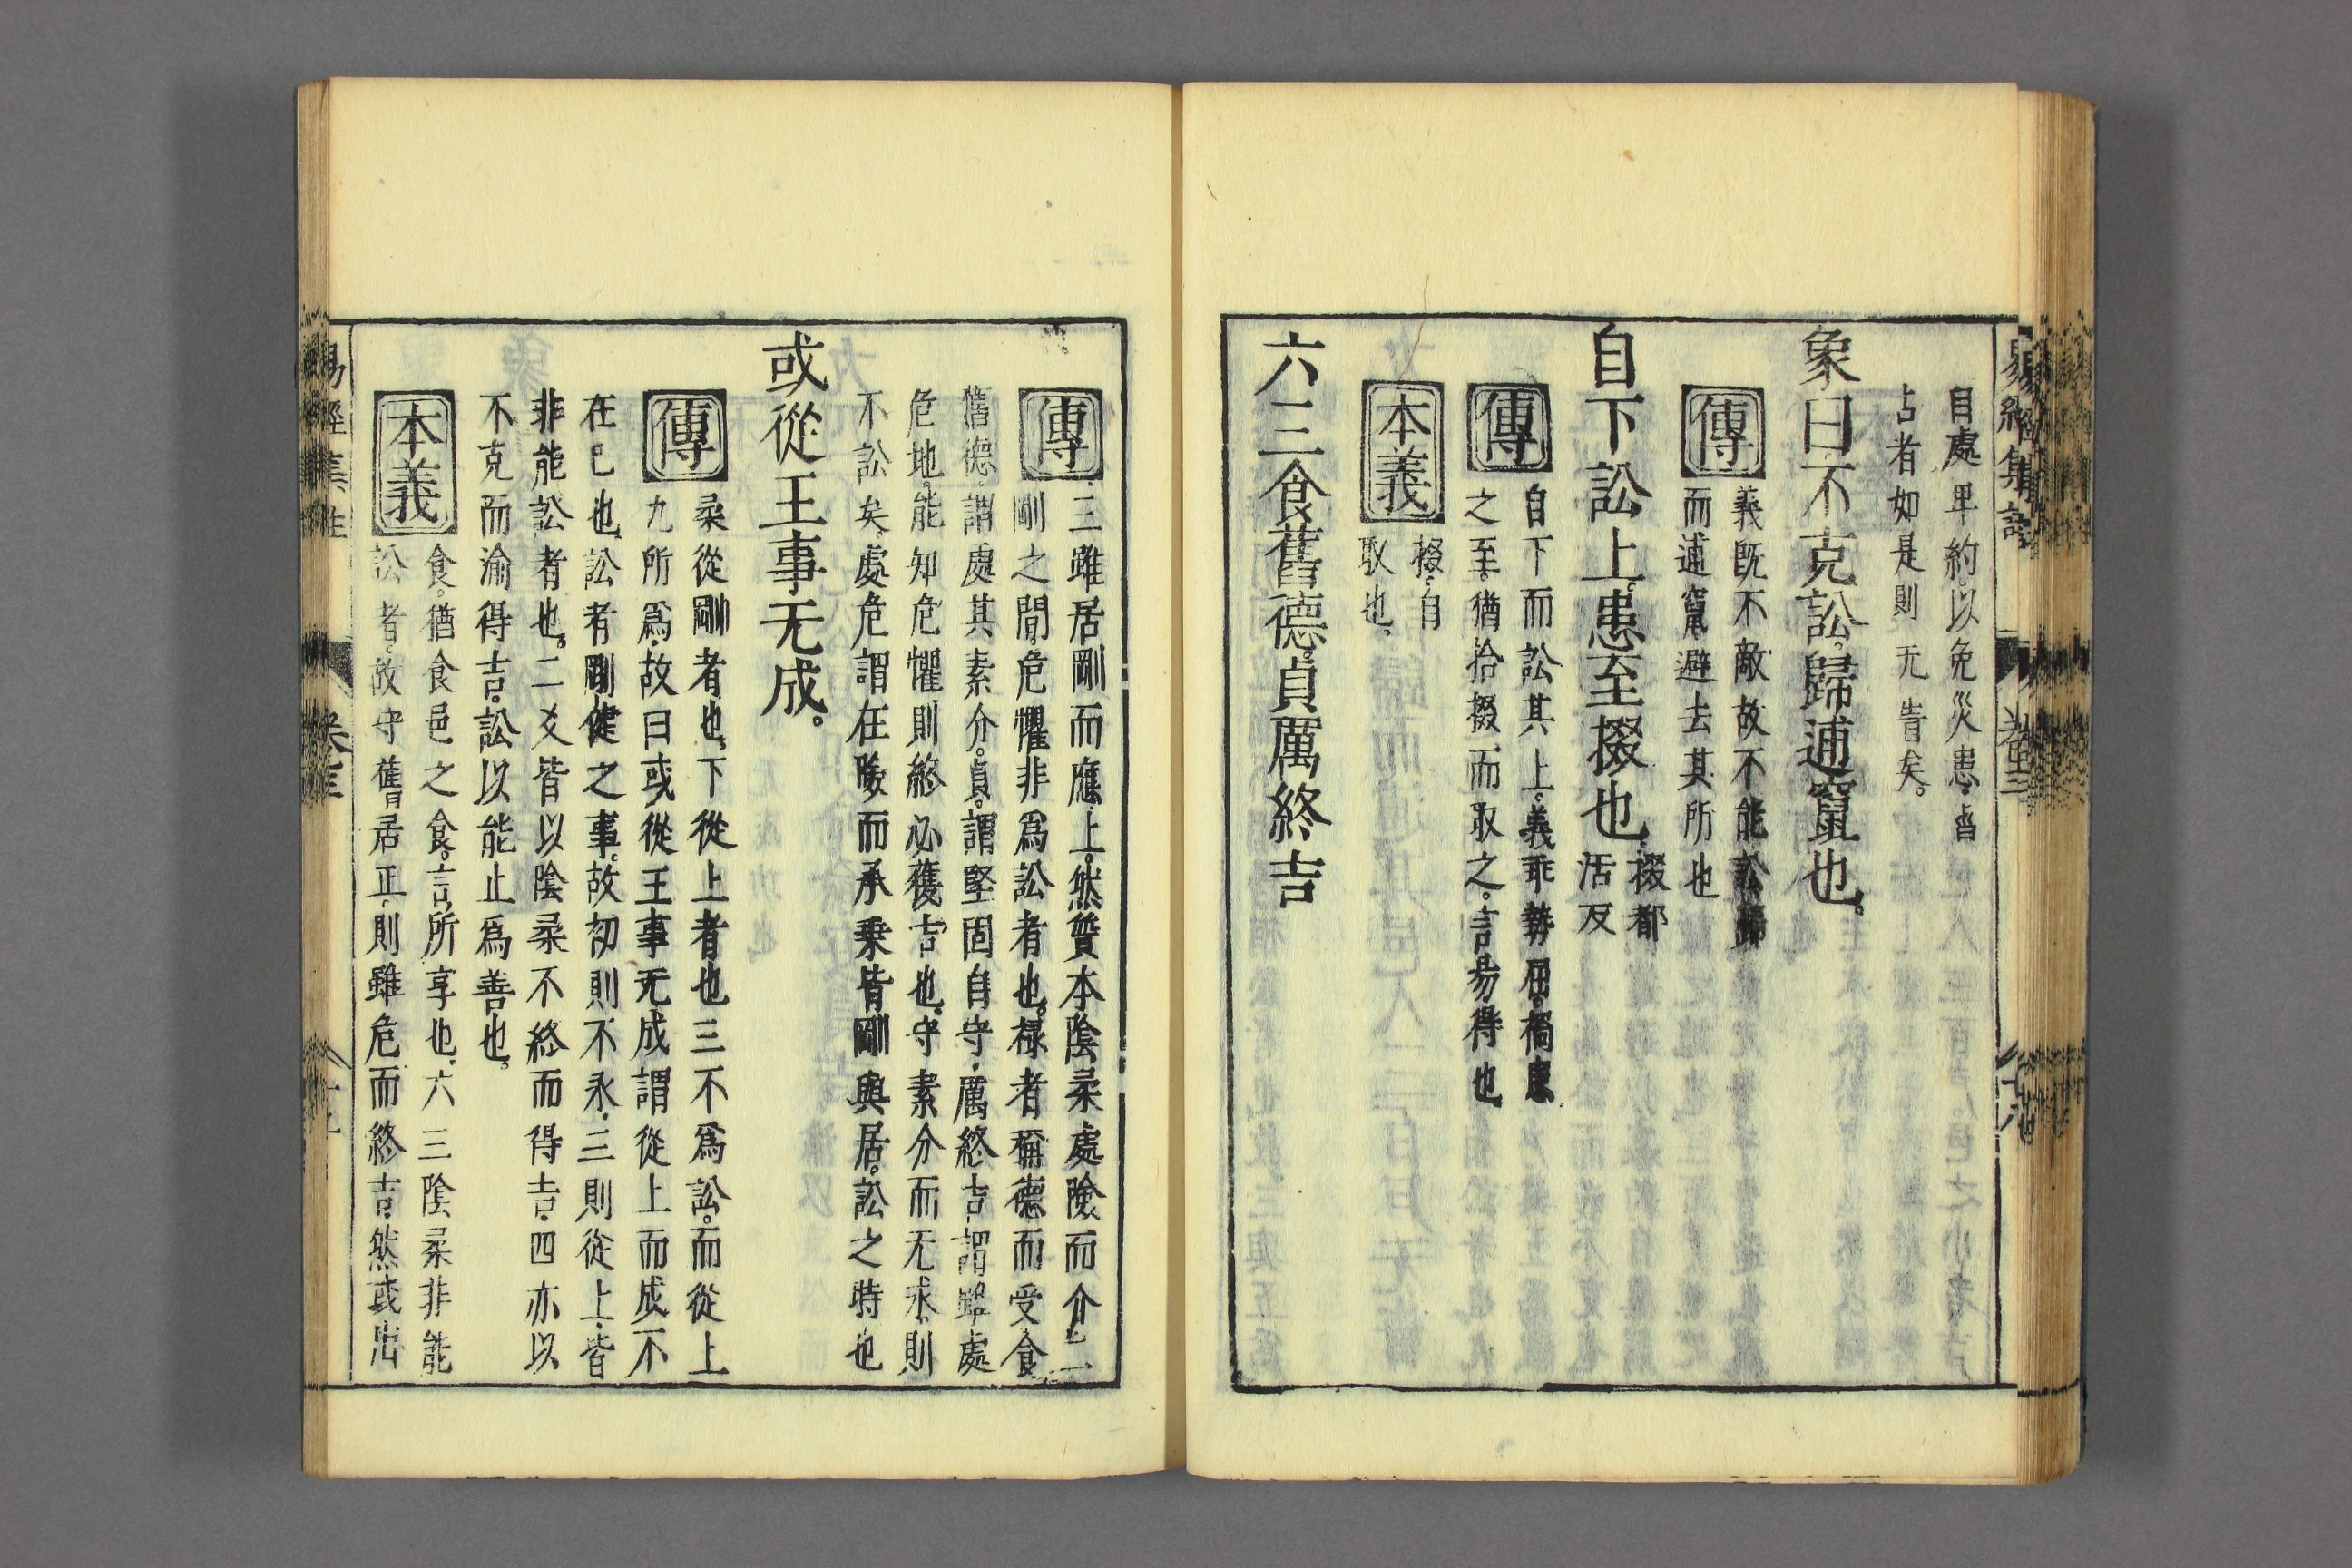 自處卑約。以免災患。
占者如是則无眚矣。
象曰不克訟。歸逋竄也。
傳
義旣不敵故不能訟歸
而逋竄避去其所也
自下訟上。患至掇也。
掇都
活反
傳
自下而訟其上。義乖勢屈。禍患
之至。猶拾掇而取之。言易得也
本義
掇。自
取也。
六三食舊德。貞厲終吉
傳
三雖居剛而應上。然質本陰柔處險而介二
剛之間。危懼非爲訟者也。祿者稱德而受食
舊德。謂處其素分。貞。謂堅固自守。厲終吉謂雖處
危地。能知危懼則終必獲吉也。守素分而无求。則
不訟矣。處危謂在險而承乗皆剛與居。訟之時也
或從王事无成。
傳
柔從剛者也。下從上者也三不爲訟。而從上
九所爲。故曰或從王事无成謂從上而成不
在已也。訟者有剛健之事。故初則不永。三則從上。皆
非能訟者也。二爻皆以陰柔不終而得吉。四亦以
不克而渝得吉。訟以能止爲善也。
本義
食。猶食邑之食。言所享也。六三陰柔非能
訟者。故守舊居正。則雖危而終吉。然或出
易經集註 卷三